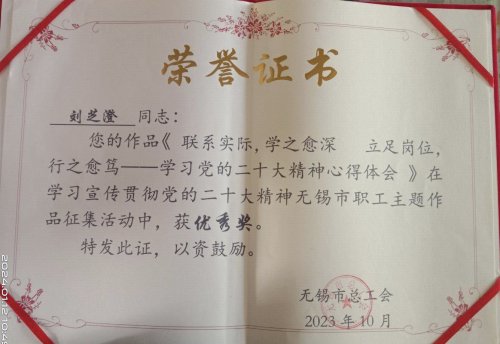 荣誉证书
刘芝澄 同志：
您的作品《 联系实际，学之愈深 立足岗位，
行之愈笃——学习党的二十大精神心得体会 》在
学习宣传贯彻党的二十大精神无锡市职工主题作
品征集活动中，获优秀奖。
特发此证，以资鼓励。
无锡市总工会
2023 年 10 月